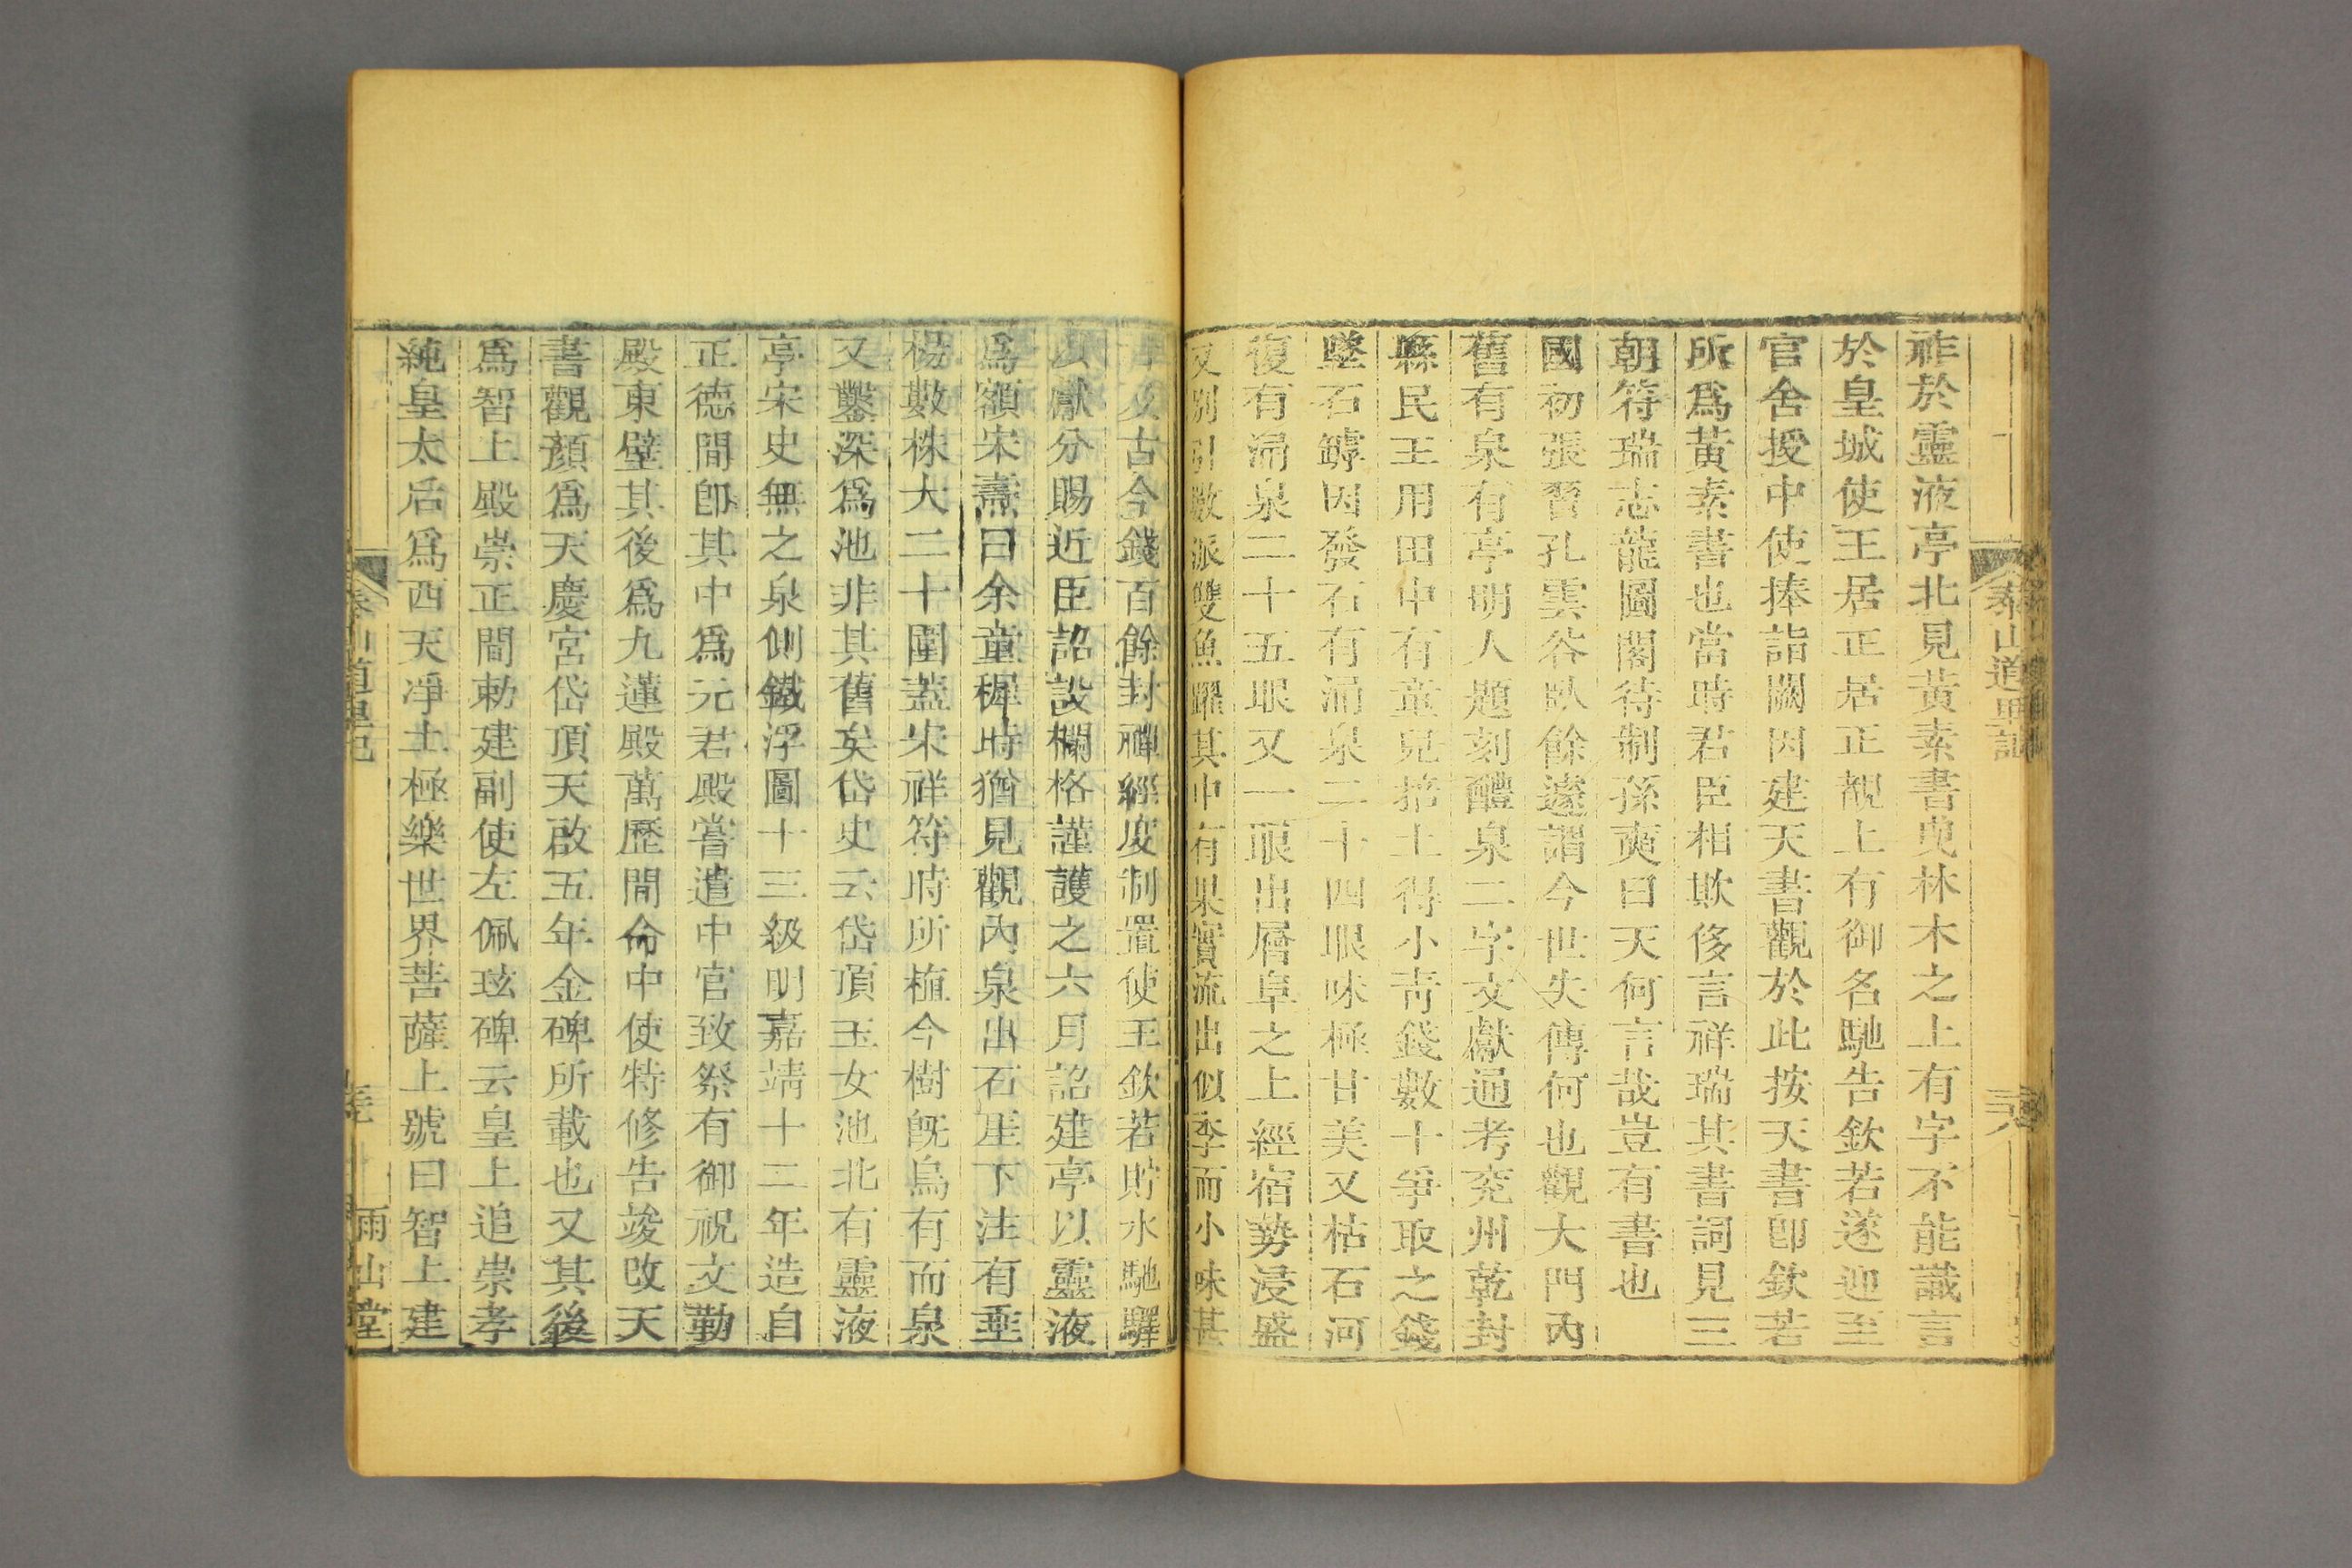 泰山道里記
祚於靈液亭北見黃素書曳林木之上有字不能識言
於皇城使王居正居正覩上有御名馳告欽若遂迎至
官舍授中使捧詣闕因建天書觀於此按天書卽欽若
所爲黃素書也當時君臣相欺侈言祥瑞其書詞見三
朝符瑞志龍圖閣待制孫奭曰天何言哉豈有書也
國初張 孔雲谷臥餘遂謂今世失傳何也觀大門內
舊有泉有亭明人題刻醴泉二字文獻通考兖州乾封
縣民王用田中有童兒掊土得小靑錢數十爭取之錢
墜石罅因發石有涌泉二十四眼味極甘美又枯石河
復有涌泉二十五眼又一眼出層阜之上經宿勢浸盛
又別引數派雙魚躍其中有果實流出似李而小味甚
古今錢百餘封禪經度制置使王欽若貯水馳驛
以獻分賜近臣詔設欄格謹護之六月詔建亭以靈液
爲額宋燾曰余童穉時猶見觀內泉出石崖下注有垂
楊數株大二十圍蓋宋祥符時所植今樹旣烏有而泉
又鑿深爲池非其舊矣岱史云岱頂玉女池北有靈液
亭宋史無之泉側鐵浮圖十三級明嘉靖十二年造自
正德間卽其中爲元君殿嘗遣中官致祭有御祝文勒
殿東壁其後爲九蓮殿萬歷間命中使特修告竣改天
書觀顏爲天慶宮岱頂天啟五年金碑所載也又其後
爲智上殿崇正間勅建副使左佩玹碑云皇上追崇孝
純皇太后爲西天淨土極樂世界菩薩上號曰智上建
泰山道里記
雨山堂